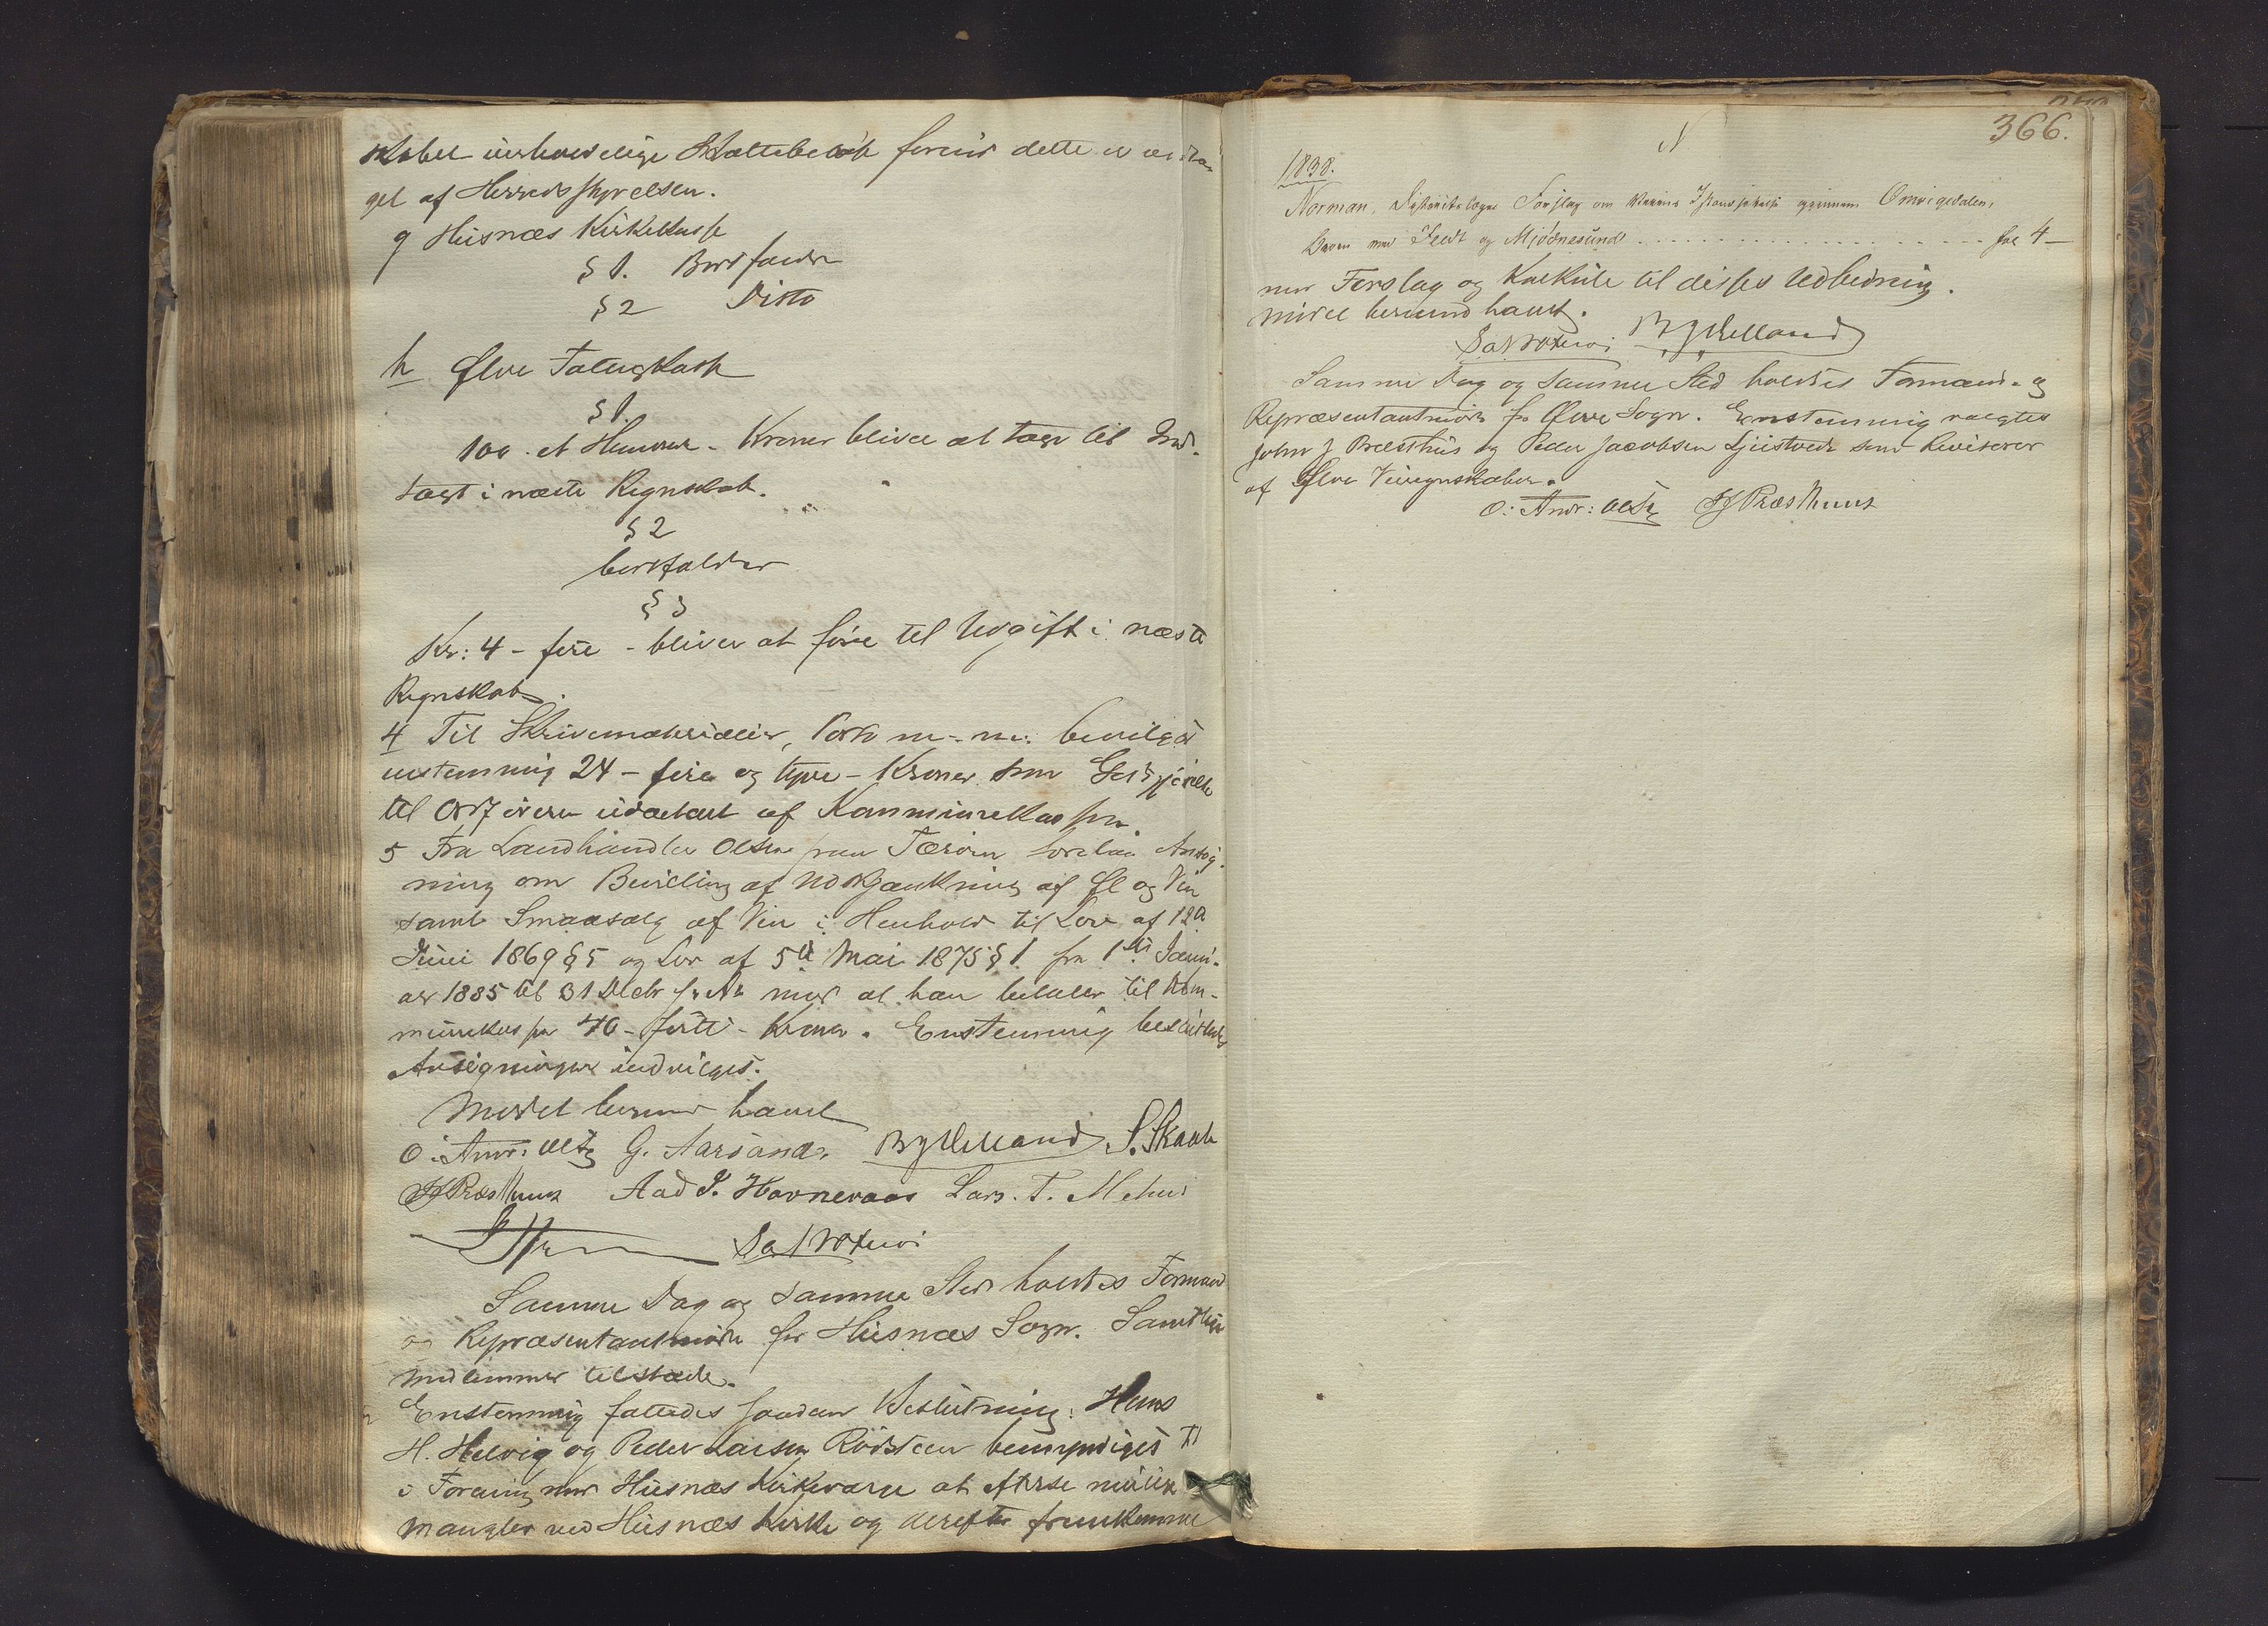 skabet uerholdelige Skattebeløb forend dette er
get af Herredsstyrelsen.
g Husnæs Kirkekasse
§ 1. Bortfalder
§ 2 Ditto
h Ølve Fattigkasse
§ 1.
100 - et Hundrer - Kroner bliver at tage til Ind-
tægt i næste Regnskab.
§ 2
bortfalder
§ 3
Kr: 4 - fire - bliver at føre til Udgift i næste
Regnskab.
4 Til Skrivematerialier, Porto m. m. bevilges
enstemmig 24 - fire og tyve - Kroner som Godtgjørelse
til Ordføreren udbetalt af Kommunekassen.
5 Fra Landhandler Olsen paa Terøen forelaa Ansøg-
ning om Bevilling af Udskjænkning af Øl og Vin
samt Smaasalg af Vin i Henhold til Lov af 12te
Juni 1869 § 5 og Lov af 5te Mai 1875 § 1 fra 1ste Janu-
ar 1885 til 31 Decbr s. A. mod at han betaler til Kom-
munekassen 40 - førti - Kroner. Enstemmig besluttedes
Ansøgningen indvilget.
Mødet dermed hævet
O. Andr: Øl G. Aarsand B Helland S. Skaale
JJ Præsthuus Aad J. Havneraas Lars. T. Mehus
Samme Dag og samme Sted holdtes Formand
og Repræsentantmøde for Husnæs Sogn. Samtlige
Medlemmer tilstæde.
Enstemmig fattedes saadan Beslutning: Hans
H. Helvig og Peder Larsen Rødsteen bemyndiges til
i Forening med Husnæs Kirkeværge at efterse mulige
Mangler ved Husnæs Kirke og derefter fremkomme
366.
N
1838.
Norman, Distriktslæge Forslag om gjennem Omvigedalen,
med Feedt og Mjødnesund . . . . . . . . . . . . . . . . . . fol 4 -
med Forslag og Kalkule til disses Udbedring.
Mødet dermed hævet.
B Helland
Samme Dag og samme Sted holdtes Formand- og
Repræsentantmøde for Ølve Sogn. Enstemmig valgtes
John J Præsthus og Peder Jacobsen som Revisorer
af Ølve Veiregnskaber.
O. Andr: Øl JJ Præsthuus